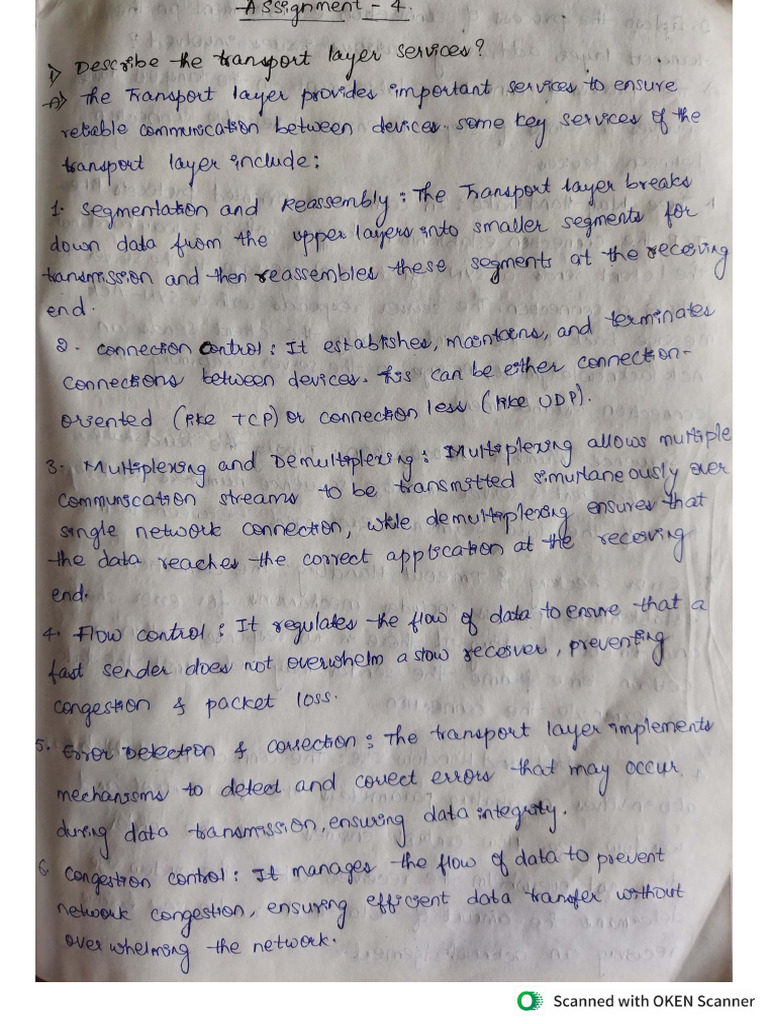 Assignment - 4.
1) Describe the transport layer services?
A) The Transport layer provides important services to ensure
reliable communication between devices. some key services of the
transport layer include:
1. Segmentation and Reassembly: The Transport layer breaks
down data from the upper layers into smaller segments for
transmission and then reassembles these segments at the receiving
end.
2. connection control: It establishes, maintains, and terminates
connections between devices. This can be either connection-
oriented (like TCP) or connection less (like UDP).
3. Multiplexing and Demultiplexing: Multiplexing allows multiple
communication streams to be transmitted simultaneously over
single network connection, while demultiplexing ensures that
the data reaches the correct application at the receiving
end.
4. Flow control: It regulates the flow of data to ensure that a
fast sender does not overwhelm a slow receiver, preventing
congestion & packet loss.
5. Error Detection & correction: The transport layer implements
mechanisms to detect and correct errors that may occur
during data transmission, ensuring data integrity.
6. congestion control: It manages the flow of data to prevent
network congestion, ensuring efficient data transfer without
over whelming the network.
Scanned with OKEN Scanner